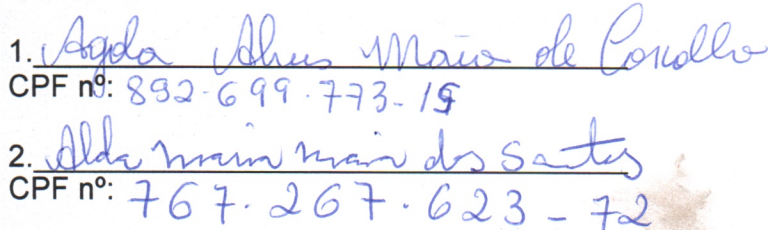 1. Agda Alves Maia de Carvalho
CPF nº: 892-699.773-15
2. Alda Maria Maia dos Santos
CPF nº: 767.267.623-72